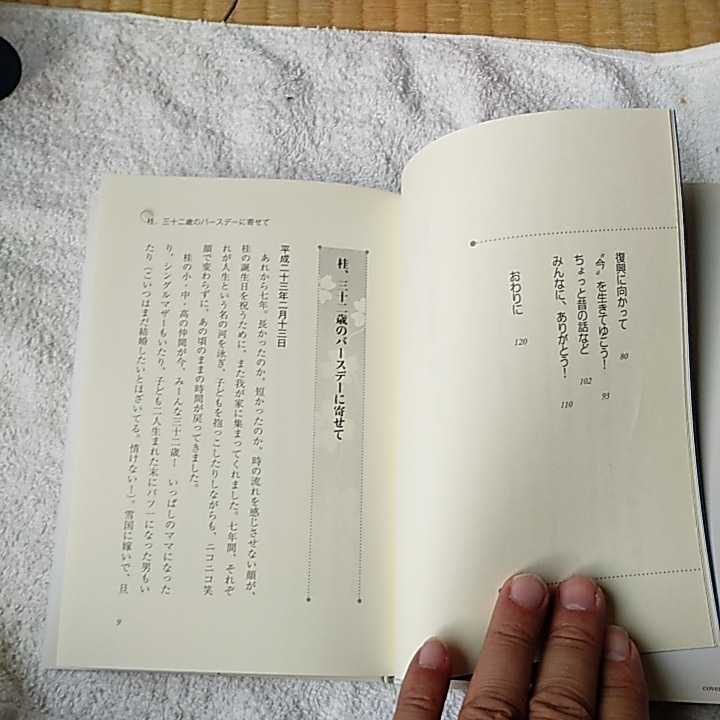 復興に向かって 80
〝今〟を生きてゆこう! 93
ちょっと昔の話など 102
みんなに、ありがとう! 110
おわりに 120
桂、三十二歳のバースデーに寄せて
桂、三十二歳のバースデーに寄せて
平成二十三年二月十三日
あれから七年。長かったのか、短かったのか、時の流れを感じさせない顔が、
桂の誕生日を祝うために、また我が家に集まってくれました。七年間、それぞ
れが人生という名の河を泳ぎ、子どもを抱っこしたりしながらも、ニコニコ笑
顔で変わらずに、あの頃のままの時間が戻ってきました。
桂の小・中・高の仲間が今、みーんな三十二歳! いっぱしのママになった
り、シングルマザーもいたり、子ども二人生まれた末にバツ一になった男もい
たり(こいつはまだ結婚したいとほざいてる。情けない!)。雪国に嫁いで、旦
9
cover